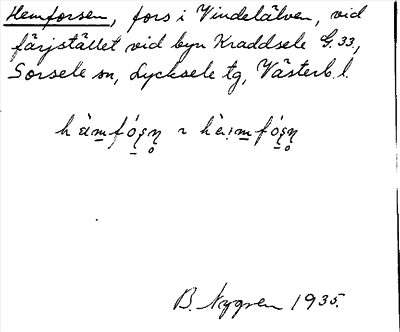 Hemforsen, fors i Vindelälven, vid
färjstället vid byn Kraddsele G. 33,
Sorsele sn, Lycksele tg, Västerb. l.
B. Nygren 1935.